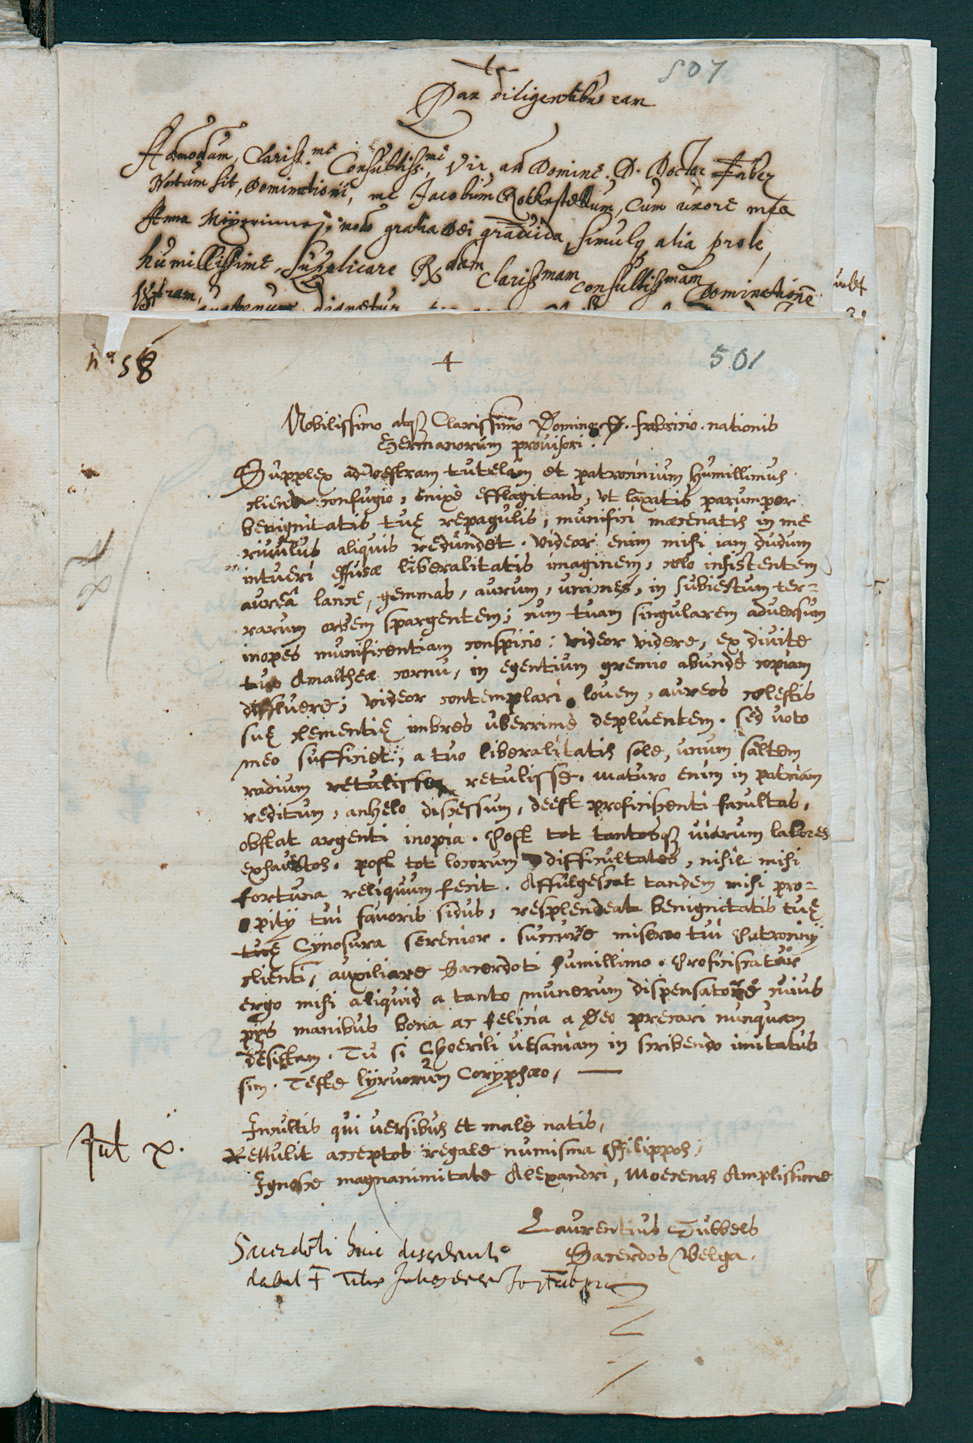 507
Pax diligentibus eam
Admodum Clariss.me Consultiss.me Vir, ac Domine. D. Doctor Faber
Notum sit, Dominationi, me Jacobum Cum uxore mea
Anna gratia Dei gravida, simulq alia prole,
humillissime, Suplicare Rdam Clarissmam consultissmam Dominationē
Vestram, quatenus dignetur
nº 58
501
Nobilissimo atq Clarissimo Domino D. fabricio. nationis
Germanorum provisori.
Supplex ad vestram tutelam et patrocinium humillimus
cliens confugio, enixè efflagitans, vt laxatis parumper
benignitatis tuę repagulis, munifici mæcenatis in me
rivulus aliquis redundet. videor enim mihi iam dudum
intueri effusæ liberalitatis imaginem, cœlo insistentem
aureâ lance, gemmas, aurum, uniones, in subiectum ter=
rarum orbem spargentem; cum tuam singularem adversum
inopes munificentiam conspicio: videor videre, ex divite
tuo Amaltheæ cornu, in egentium gremio abundè copiam
diffluere; videor contemplari Iovem, aureos cœlestis
suę clementię imbres uberrimè depluentem. sed voto
meo sufficiet, a tuo liberalitatis sole, unum saltem
radium retulisse retulisse. maturo enim in patriam
reditum, anhelo discessum, deest proficiscenti facultas,
obstat argenti inopia. Post tot tantosq viarum labores
exhaustos. post tot locorum difficultates, nihil mihi
fortuna reliquum fecit. Affulgescat tandem mihi pro=
pitij tui favoris sidus, resplendeat benignitatis tuę
tuę Cynosura serenior. succurre misero tui Patrocinij
clienti, auxiliare Sacerdoti humillimo. Proficiscatur
ergo mihi aliquid a tanto munerum dispensatore cuius
pijs manibus bona ac felicia a Deo precari nunquam
desistam. Tu si Choerili vesaniam in scribendo imitatus
sim. Teste lyricorum Coryphæo,
Incultis qui versibus et malè natis,
Rettulit acceptos regale numisma Philippos,
Ignosce magnanimitate Alexandri, Moecenas Amplissime
Jul x.
Laurentius Tubbels
Sacerdos Belga.
Sacerdoti huic